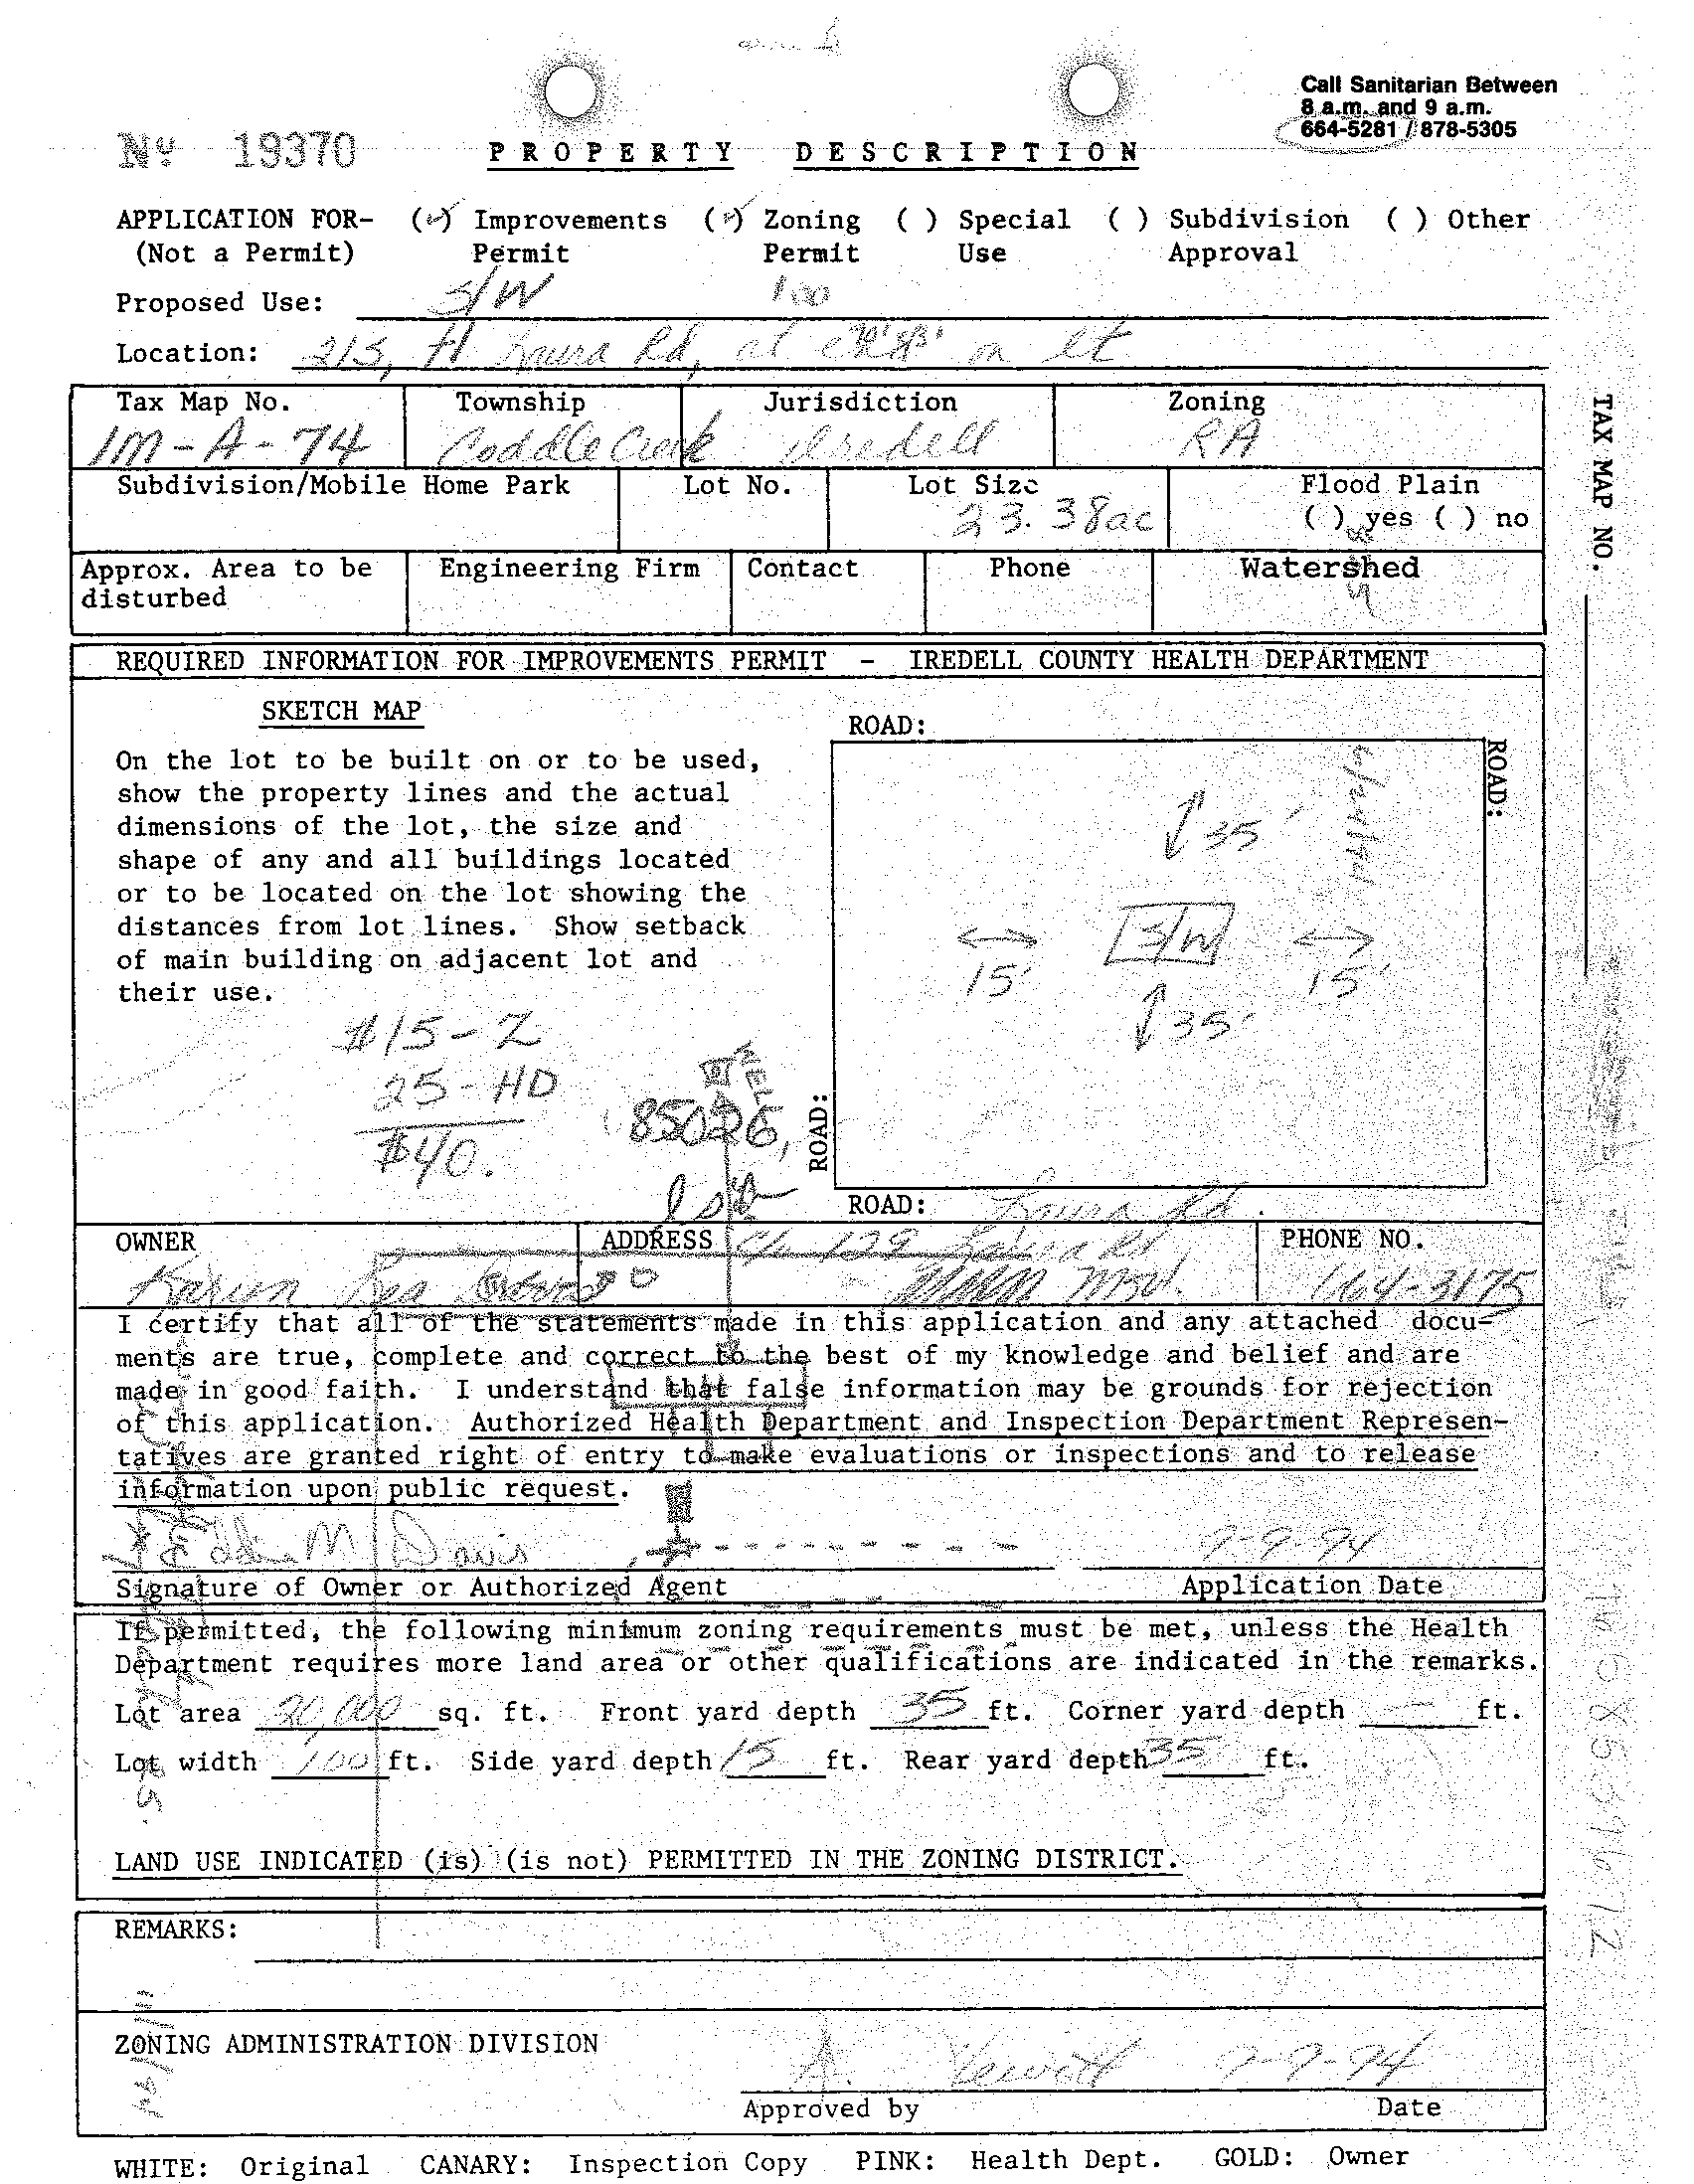 Call Sanitarian Between
8 a.m. and 9 a.m.
664-5281 / 878-5305
Nº 19370
PROPERTY DESCRIPTION
APPLICATION FOR- (✓) Improvements (✓) Zoning ( ) Special ( ) Subdivision ( ) Other
(Not a Permit) Permit Permit Use Approval
Proposed Use: S/W 100
Location: 21S, Laura Rd, at on lt
Tax Map No. Township Jurisdiction Zoning
1M-A-74 Coddle Creek Iredell RA
Subdivision/Mobile Home Park Lot No. Lot Size Flood Plain
23.38ac ( ) yes ( ) no
Approx. Area to be Engineering Firm Contact Phone Watershed
disturbed
TAX MAP NO.
REQUIRED INFORMATION FOR IMPROVEMENTS PERMIT - IREDELL COUNTY HEALTH DEPARTMENT
SKETCH MAP
ROAD:
On the lot to be built on or to be used,
show the property lines and the actual
dimensions of the lot, the size and
shape of any and all buildings located
or to be located on the lot showing the
distances from lot lines. Show setback
of main building on adjacent lot and
their use.
ROAD:
35'
S/W
15' 15'
35'
$15-Z
25-HD
$40.
85026,
ROAD:
ROAD: Laura Rd.
OWNER ADDRESS c/o 129 Laura Rd PHONE NO.
Karen 664-3175
I certify that all of the statements made in this application and any attached docu-
ments are true, complete and correct to the best of my knowledge and belief and are
made in good faith. I understand that false information may be grounds for rejection
of this application. Authorized Health Department and Inspection Department Represen-
tatives are granted right of entry to make evaluations or inspections and to release
information upon public request.
Eddie M Davis 9-9-94
Signature of Owner or Authorized Agent Application Date
If permitted, the following minimum zoning requirements must be met, unless the Health
Department requires more land area or other qualifications are indicated in the remarks.
Lot area 20,000 sq. ft. Front yard depth 35 ft. Corner yard depth - ft.
Lot width 100 ft. Side yard depth 15 ft. Rear yard depth 35 ft.
LAND USE INDICATED (is) (is not) PERMITTED IN THE ZONING DISTRICT.
REMARKS:
ZONING ADMINISTRATION DIVISION
A. 9-9-94
Approved by Date
WHITE: Original CANARY: Inspection Copy PINK: Health Dept. GOLD: Owner